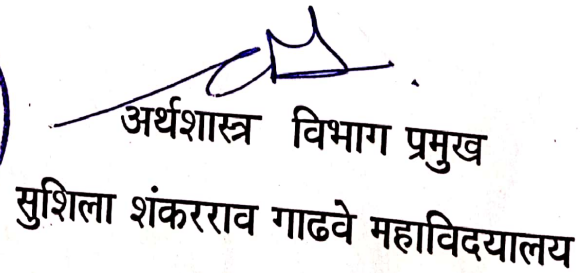 अर्थशास्त्र विभाग प्रमुख
सुशिला शंकरराव गाढवे महाविदयालय